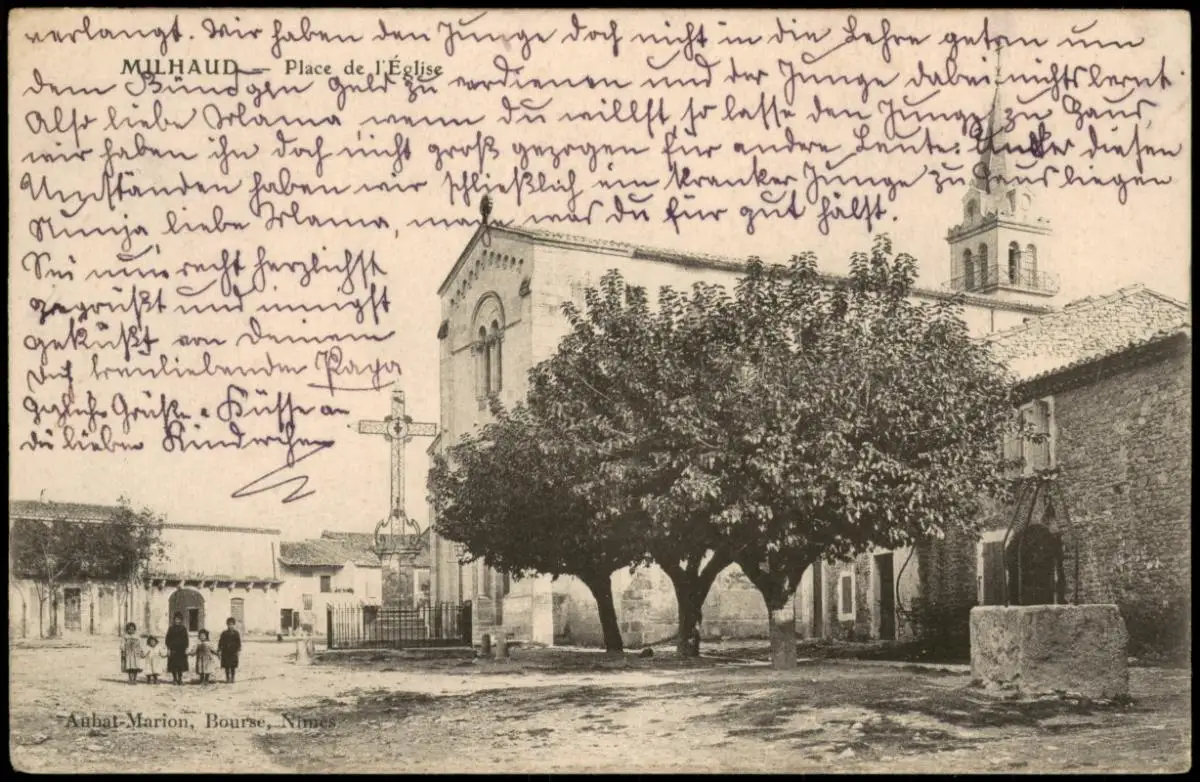 verlangt. Wir haben den Junge doch nicht in die Lehre getan um
MILHAUD — Place de l'Église
dem Geld zu verdienen und der Junge dabei nichts lernt.
Also liebe Mama, wenn du willst so lasse den Junge zu Haus,
wir haben ihn doch nicht groß gezogen für andere Leute. Unter diesen
Umständen haben wir schließlich ein kranker Junge zu Haus liegen
Nunja, liebe Mama, mache was du für gut hälst.
Sei nun recht herzlichst
gegrüßt und innigst
geküßt von Deinem
Dich treuliebenden Papa
Herzliche Grüße u. Küsse an
die lieben Kinderchen
Aubat-Marion, Bourse, Nimes